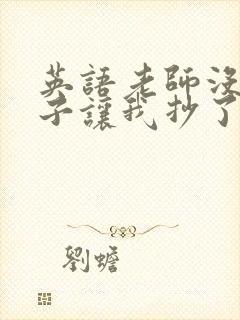 英語老師沒
子讓我抄了
劉蟾